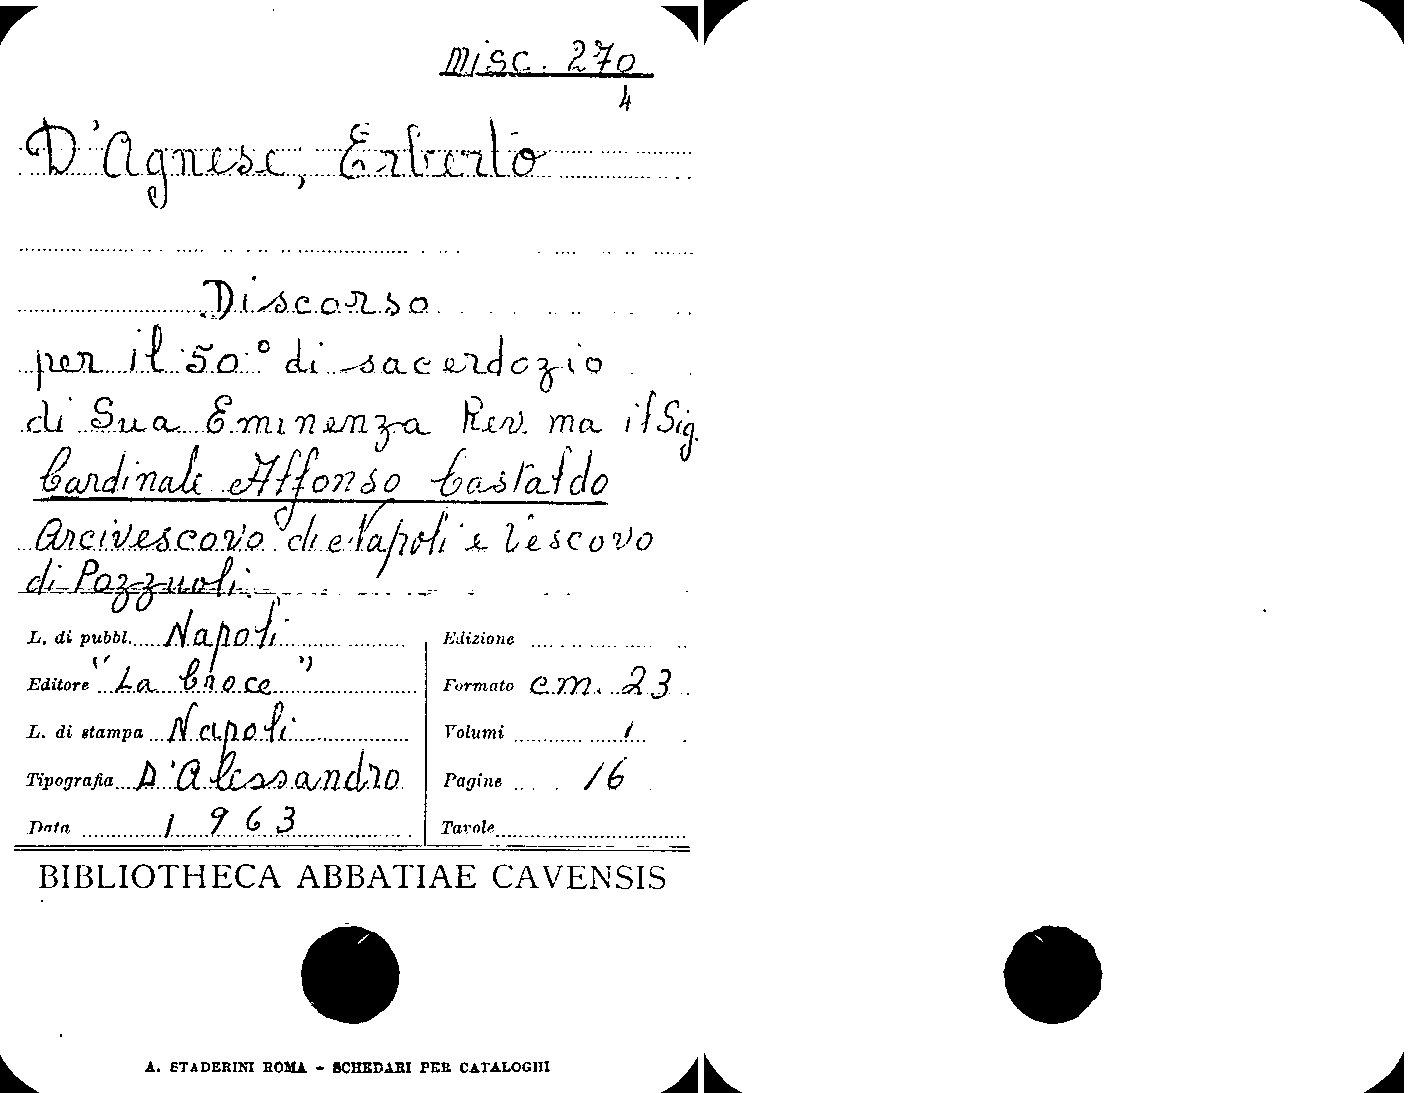 misc. 270
4
D'Agnese, Erberto
Discorso
per il 50° di sacerdozio
di Sua Eminenza Rev. ma il Sig.
Cardinale Alfonso Castaldo
Arcivescovo di Napoli e Vescovo
di Pozzuoli.
L. di pubbl. Napoli
Editore "La Croce"
L. di stampa Napoli
Tipografia D'Alessandro
Data 1963
Edizione
Formato cm. 23
Volumi 1
Pagine 16
Tavole
BIBLIOTHECA ABBATIAE CAVENSIS
A. STADERINI ROMA - SCHEDARI PER CATALOGHI